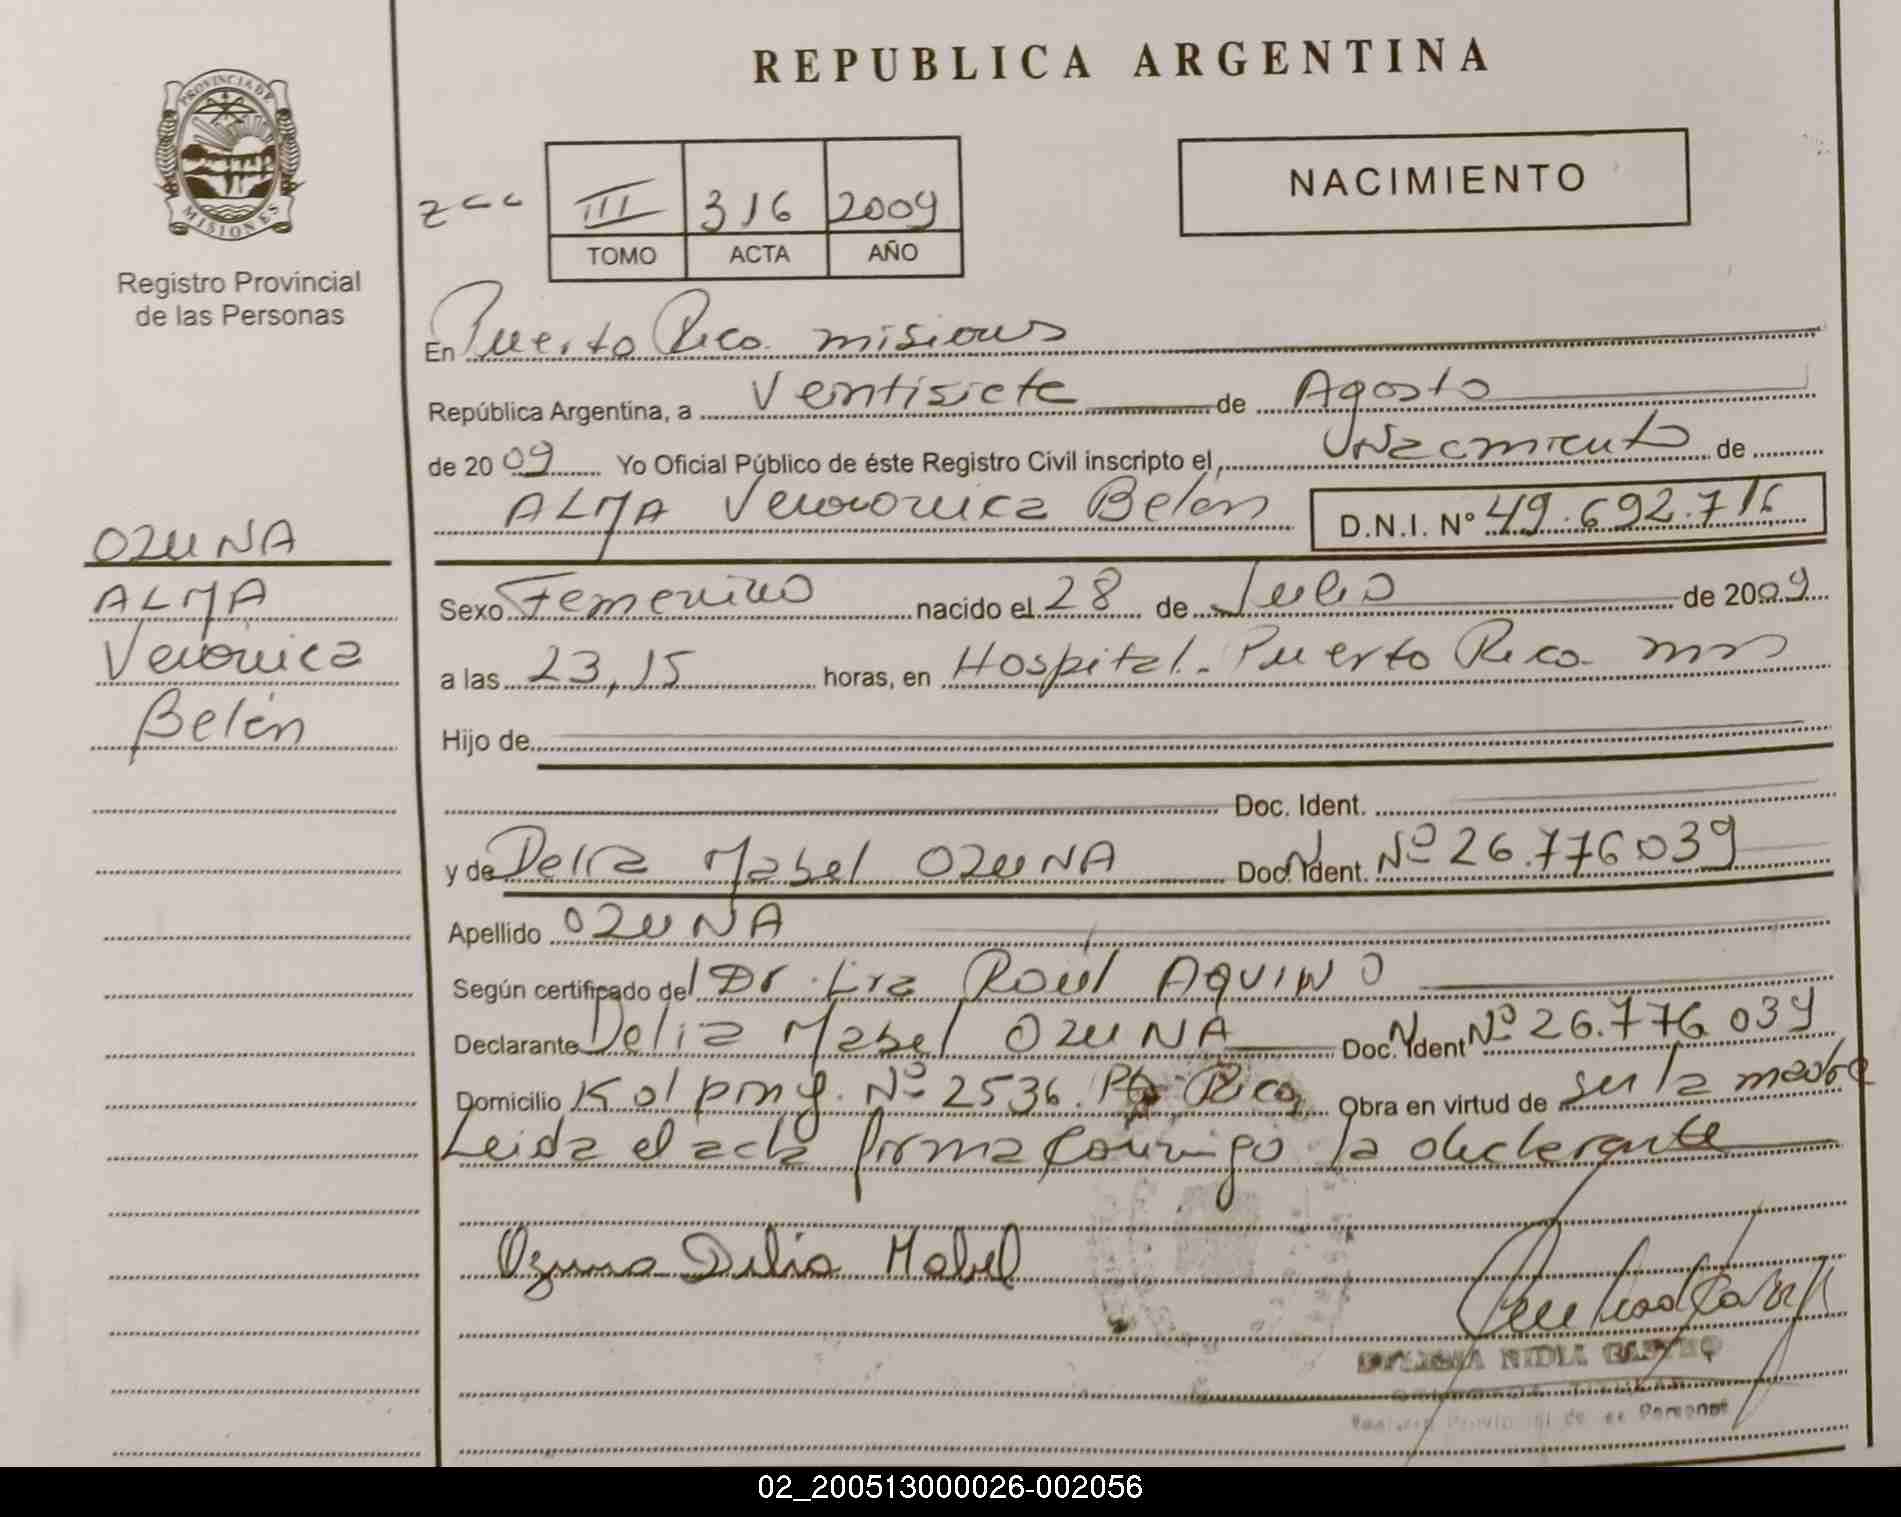 REPUBLICA ARGENTINA
PROVINCIA DE
MISIONES
Registro Provincial
de las Personas
III 316 2009
TOMO ACTA AÑO
NACIMIENTO
En Puerto Rico misiones
República Argentina, a Veintisiete de Agosto
de 2009 Yo Oficial Público de éste Registro Civil inscripto el, Nacimiento de
ALMA Veronica Belén D.N.I. N° 49.692.716
OZUNA
ALMA
Verónica
Belén
Sexo Femenino nacido el 28 de Julio de 2009
a las 23,15 horas, en Hospital. Puerto Rico mns
Hijo de
Doc. Ident.
y de Delia Mabel OZUNA Doc. Ident. Nº 26.776039
Apellido OZUNA
Según certificado del Dr. Raúl AQUINO
Declarante Delia Mabel OZUNA Doc. Ident Nº 26.776.039
Domicilio Kolping. Nº 2536. Pto Rico, Obra en virtud de ser la madre
Leida el acta firma conmigo la declarante
Ozuna Delia Mabel
NIDIA
Registro Provincial de las Personas
02_200513000026-002056